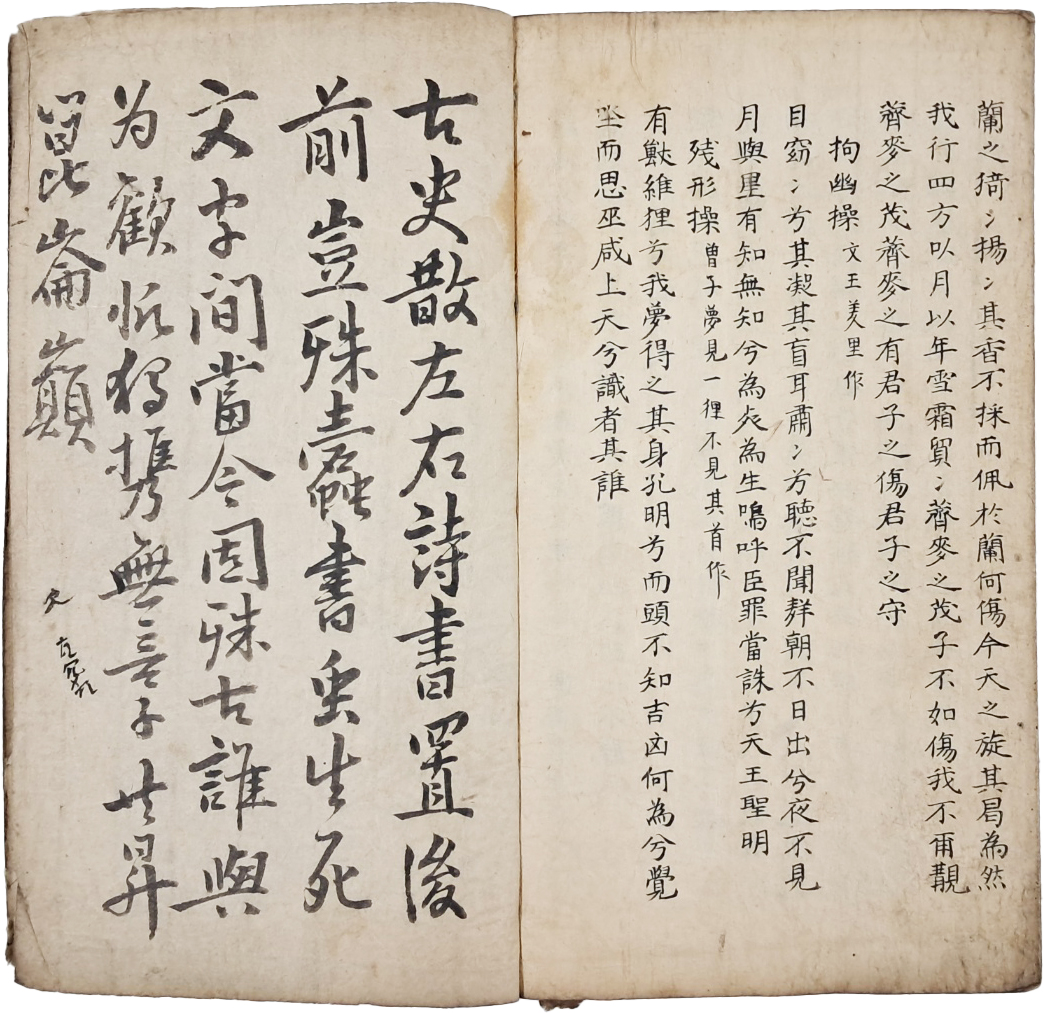 蘭之猗〻揚〻其香不採而佩於蘭何傷今天之旋其曷為然
我行四方以月以年雪霜貿〻薺麥之茂子不如傷我不甭覯
薺麥之茂薺麥之有君子之傷君子之守
拘幽操文王羑里作
目窈〻兮其凝其盲耳肅〻兮聽不聞朝不日出兮夜不見
月與星有知無知兮為死為生嗚呼臣罪當誅兮天王聖明
残形操曽子夢見一狸不見其首作
有獸維狸兮我夢得之其身孔明兮而頭不知吉凶何為兮覺
坐而思巫咸上天兮識者其誰
古史散左右詩書置後
前豈殊蠹書虫生死
文字間當今固殊古誰與
为歡忻獨携無言子共昇
崑崙巔